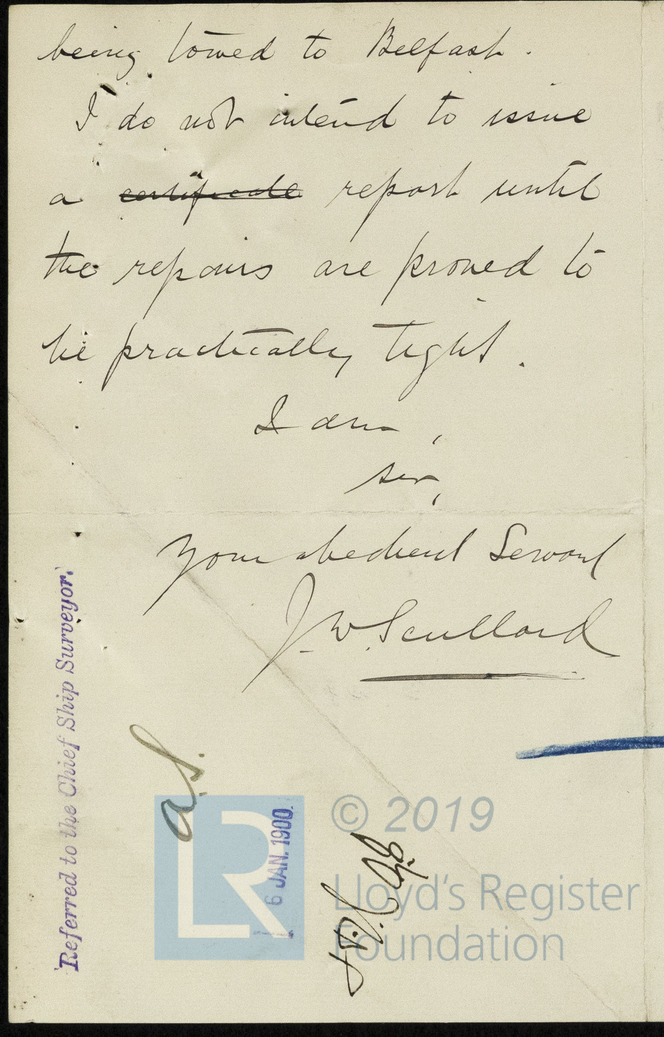 being towed to Belfast.
I do not intend to issue
a certificate report until
the repairs are proved to
be practically tight.
I am,
Sir,
Your obedient Servant
J. W. Scullard
Referred to the Chief Ship Surveyor.
a.s.
6 JAN. 1900
LR
© 2019
Lloyd's Register
Foundation